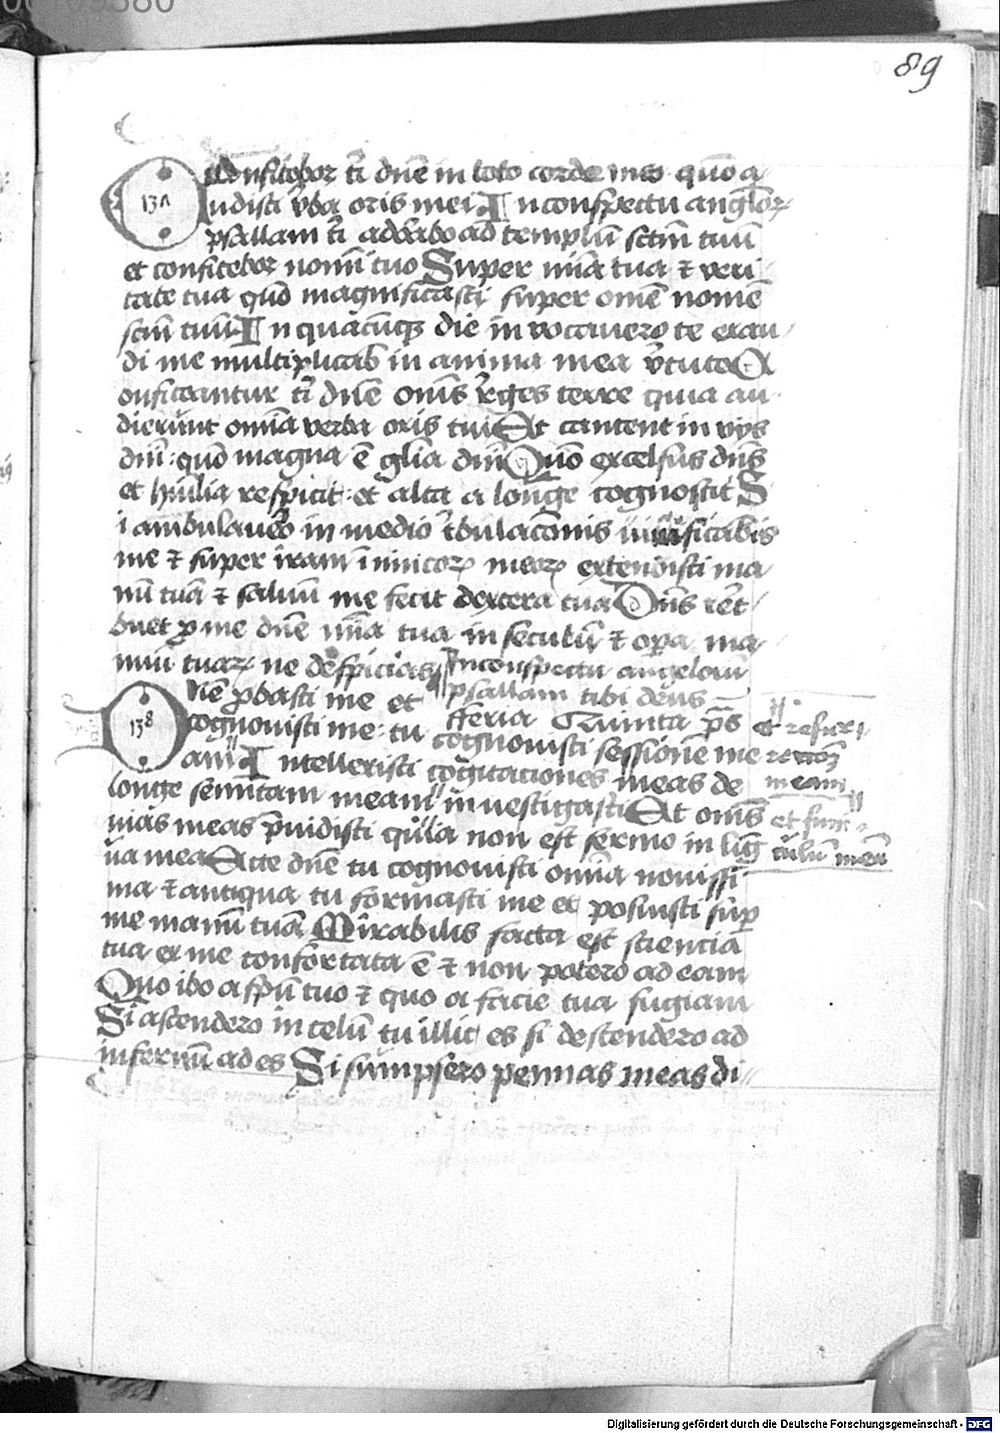 89
Confitebor tibi dn̄e in toto corde meo quō a
137
udisti v̄ba oris mei In conspectu angl̄oꝝ
psallam t̄i adorabo ad templū sctm̄ tuū
et confitebor nomī tuo Super mīa tua ⁊ veri
tate tua quō magnificasti super om̄e nomē
sctm̄ tuū In quacūqꝫ die in vocavero te exau
di me multiplicab in anima mea v̄tutē C
onfiteantur t̄i dn̄e om̄s reges terre quia au
dierunt om̄ia verba oris tui Et cantent in vijs
dn̄i : quō magna ē gl̄ia dn̄i Quō excelsus dn̄s
et hūilia respicit : et alta a longe cognoscit S
i ambulavero in medio t̄bulacōnis vivificabis
me ⁊ super iram inimicoꝝ meoꝝ extendisti ma
nū tuā ⁊ salvum me fecit dextera tua Dn̄s ret
buet ꝓ me dn̄e mīa tua in seculū ⁊ oꝑa ma
nuū tuaꝝ ne despicias In conspectu angeloruꝫ
psallam tibi deus
Dn̄e ꝓbasti me et fferia Quinta ps̄
138
cognovisti me : tu cognovisti sessionē me
am Intellexisti cogitaciones meas de
longe semitam meam investigasti Et om̄s
vias meas p̄vidisti quia non est sermo in līg
ua mea Ecce dn̄e tu cognovisti om̄ia novissi
ma ⁊ antiqua tu formasti me et posuisti suꝑ
me manū tuā Mirabilis facta est sciencia
tua ex me confortata ē ⁊ non potero ad eam
Quo ibo a spū tuo ⁊ quo a facie tua fugiam
Si ascendero in celū tu illic es si descendero ad
infernū ad es Si sumpsero pennas meas di
et resur
rectōꝫ
meam
et funi
culum meū
Digitalisierung gefördert durch die Deutsche Forschungsgemeinschaft - DFG